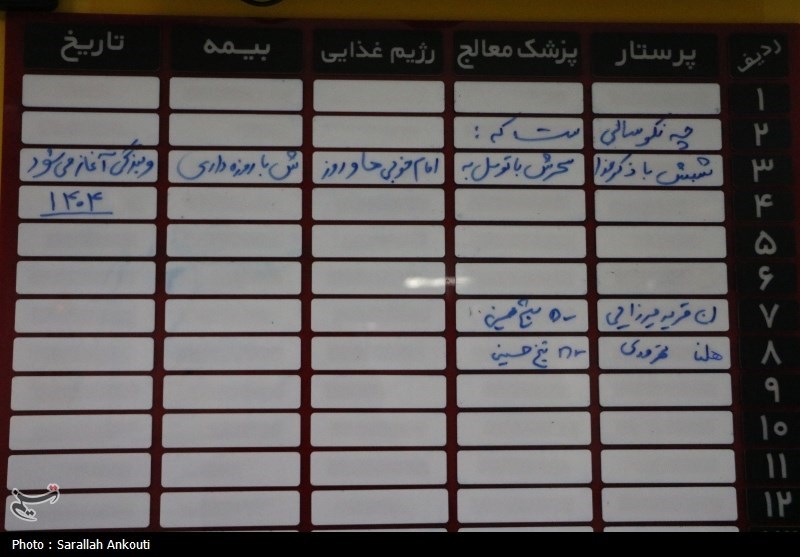 ردیف پرستار پزشک معالج رژیم غذایی بیمه تاریخ
۱
۲ چه نکو سالی ست که :
۳ شبش با ذکر خدا سحرش با توسل به امام خوبی ها و روز ش با روزه داری و بندگی آغاز می شود
۴ ۱۴۰۴
۵
۶
۷ دکتر شیخ حسین
۸ هلنا شیخ حسین
۹
۱۰
۱۱
۱۲
تسنیم
Photo : Sarallah Ankouti